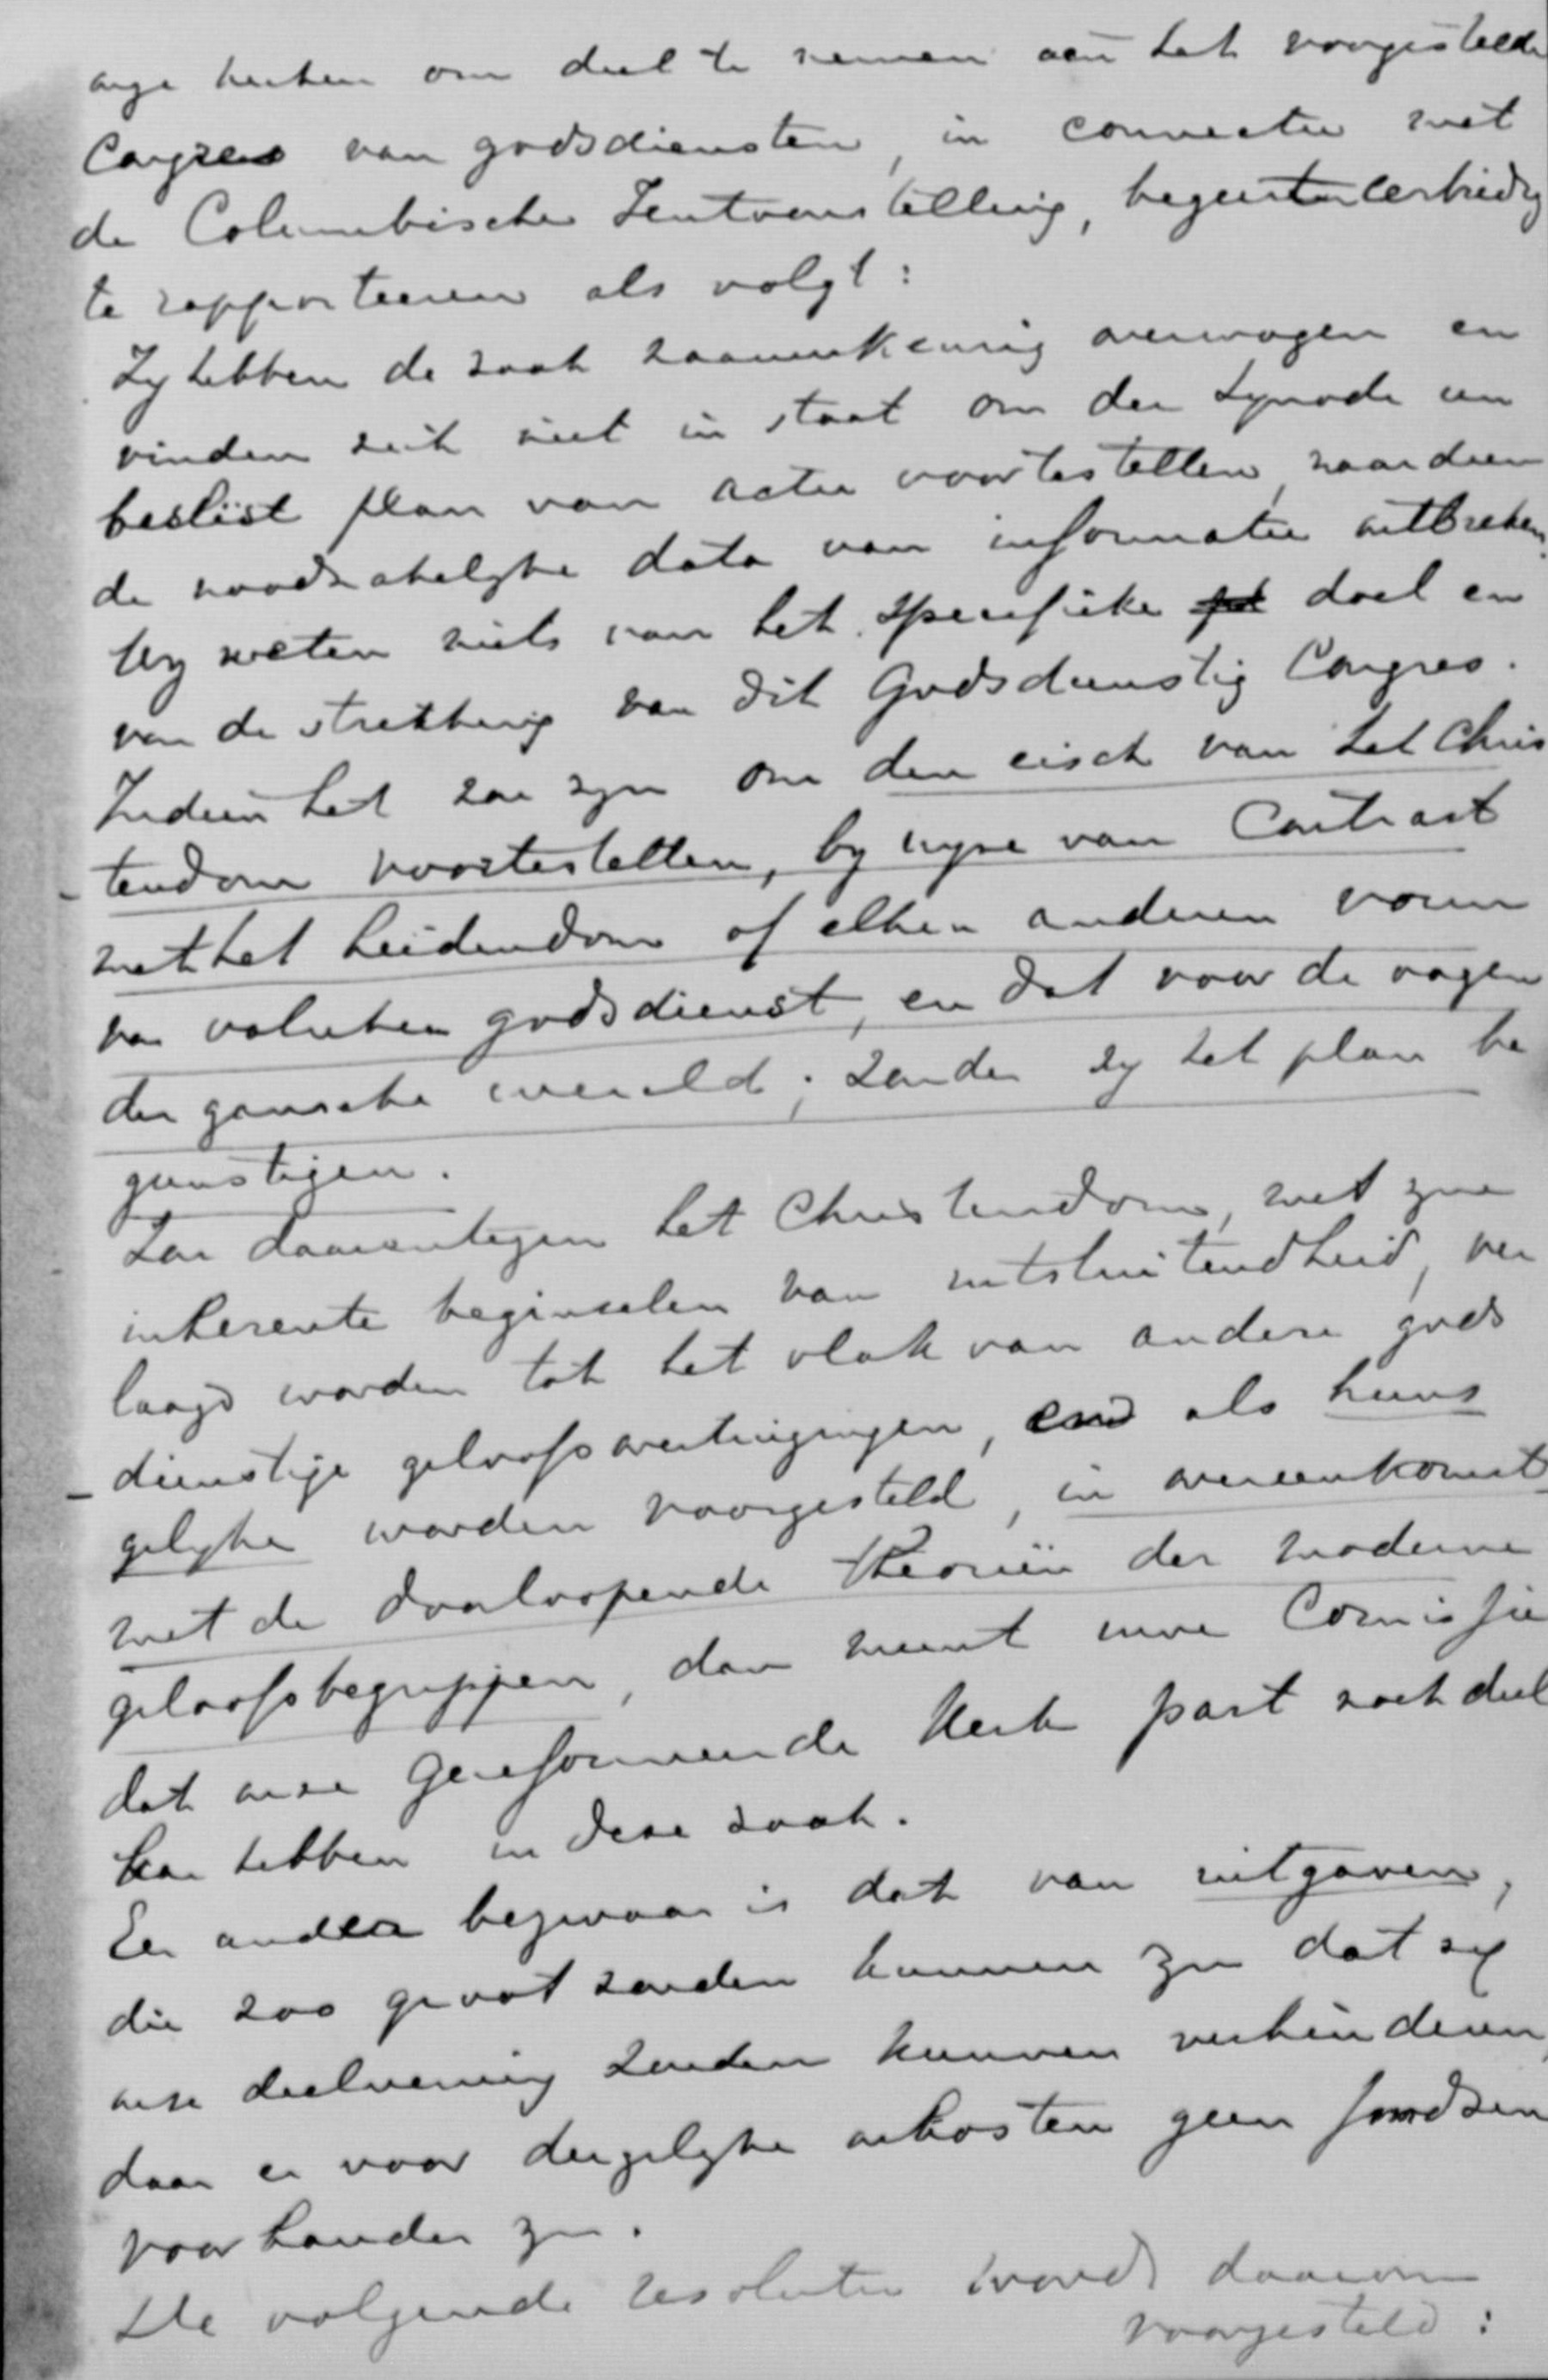 om deel te nemen aan het voorgestelde
Congres van godsdiensten, in connectie met
de Columbische Tentoonstelling, begeert eerbiedig
te rapporteeren als volgt:
Zy hebben de zaak naauwkeurig overwogen en
vinden zich niet in staat om der Synode een
beslist plan van actie voortestellen, naardien
de noodzakelyke data van informatie ontbreken.
Wy weten niets van het specifieke doel en
van de strekking van dit Godsdienstig Congres.
Indien het zou zyn om den eisch van het Chris
tendom voortestellen, by wyse van Contrast
met het heidendom of elken anderen vorm
van valschen godsdienst, en dat voor de oogen
der gansche wereld; zouden zy het plan be
gunstigen.
Zou daarentegen het Christendom, met zyne
inherente beginselen van uitsluitendheid, ver
laagd worden tot het vlak van andere gods
dienstige geloofsovertuigingen, end als huns
gelyke worden voorgesteld, in overeenkomst
met de doorloopende theoriën der moderne
geloofsbegrippen, dan meent uwe Comissie
dat onze Gereformeerde Kerk part noch deel
kan hebben in deze zaak.
Een ander bezwaar is dat van uitgaven,
die zoo groot zouden kunnen zyn dat zy
onze deelneming zouden kunnen verhinderen,
daar er voor dergelyke onkosten geen fondsen
voorhanden zyn.
De volgende resolutie wordt daarom
voorgesteld: